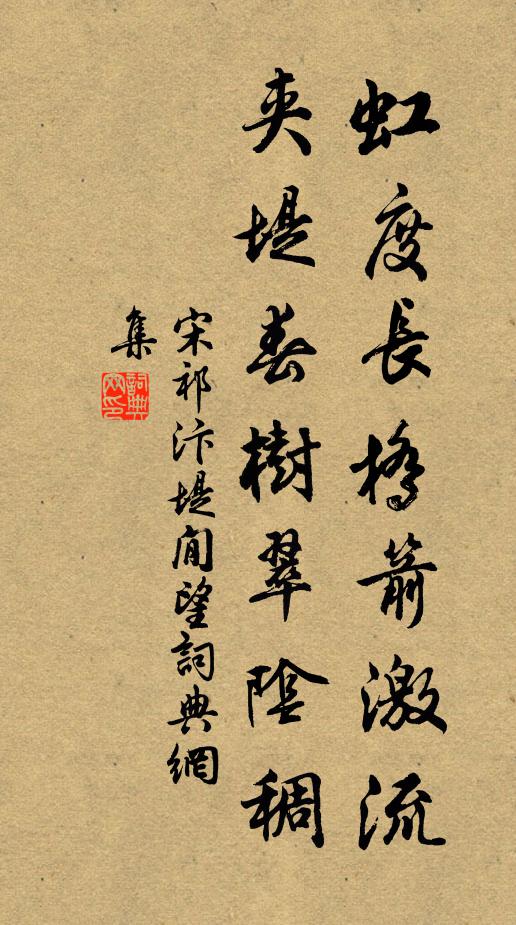 虹度長橋箭激流
夾堤春樹翠陰稠
宋祁汴堤閒望詞典網
集
詞典
网印